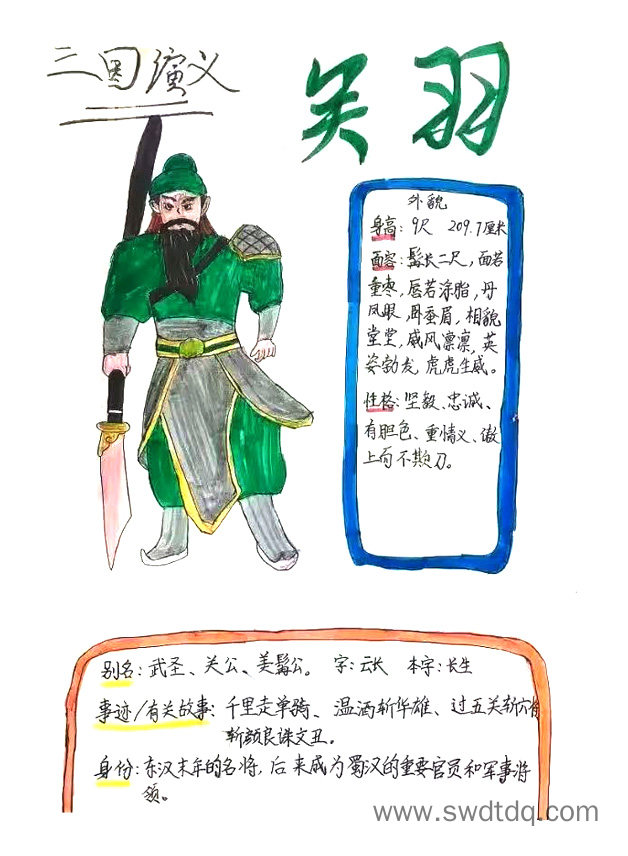 三国演义
关羽
外貌
身高：9尺 209.7厘米
面容：髯长二尺，面若
重枣，唇若涂脂，丹
凤眼，卧蚕眉，相貌
堂堂，威风凛凛，英
姿勃发，虎虎生威。
性格：坚毅、忠诚、
有胆色、重情义、傲
上而不欺
别名：武圣、关公、美髯公。 字：云长 本字：长生
事迹/有关故事：千里走单骑、温酒斩华雄、过五关斩六
斩颜良诛文丑。
身份：东汉末年的名将，后来成为蜀汉的重要官员和军事将
领。
www.swdtdq.com